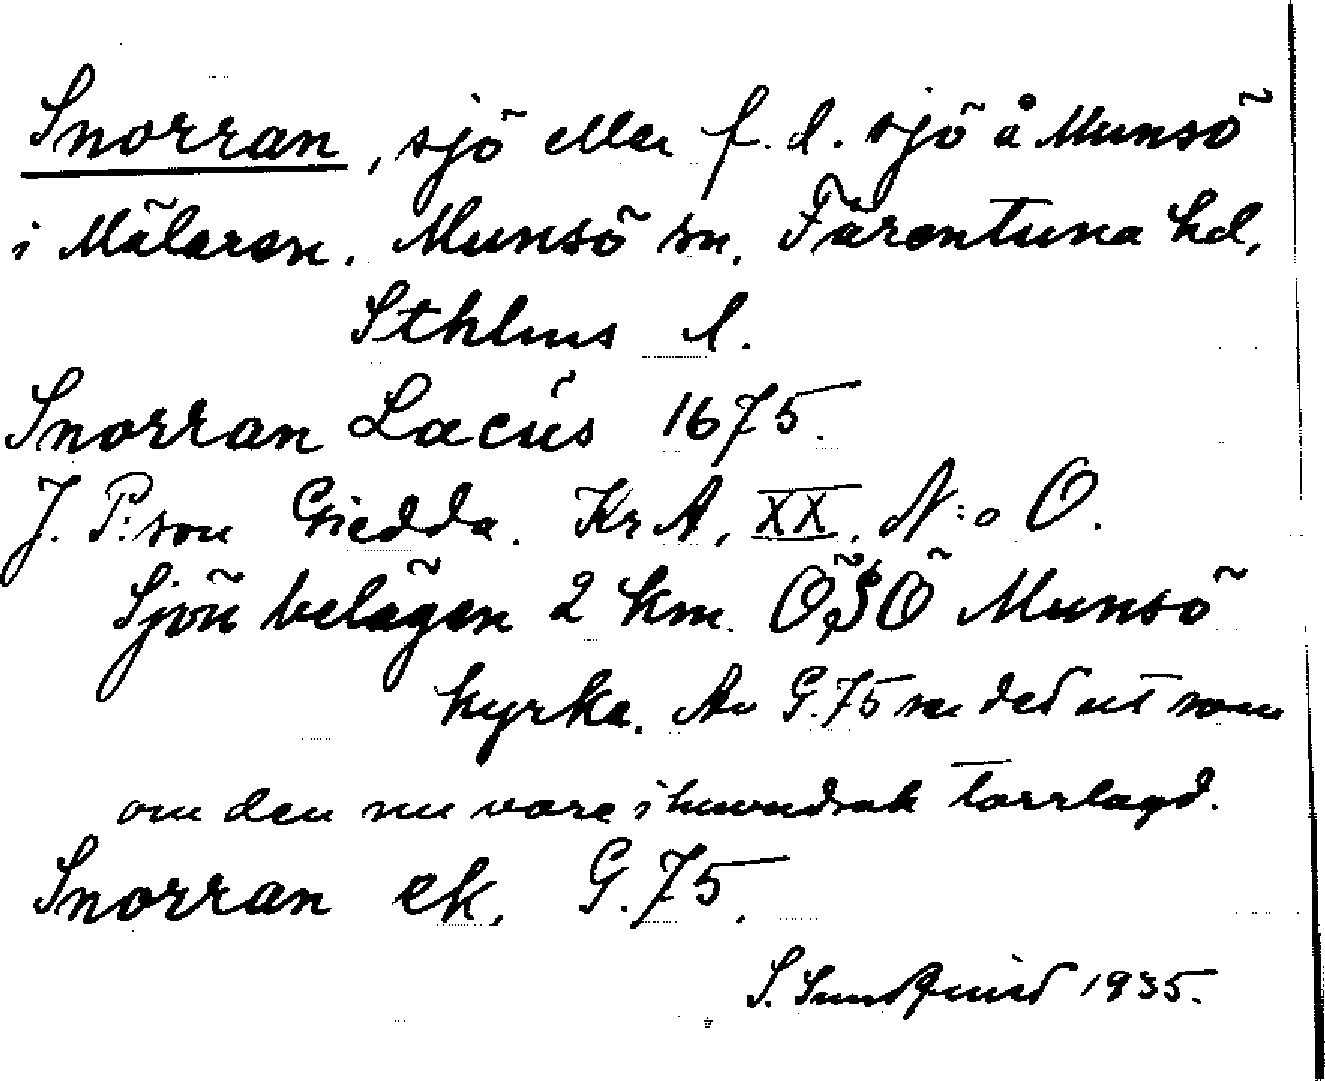 Snorran, sjö eller f. d. sjö å Munsö
i Mälaren. Munsö sn. Färentuna hd,
Sthlms l.
Snorran Lacus 1675.
J. P:son Giedda. KrA, XX. N:o O.
Sjön belägen 2 km. ÖSÖ Munsö
kyrka. Av G.75 ser det ut som
om den nu vore i huvudsak torrlagd.
Snorran ek. G.75.
S. Sundquist 1935.